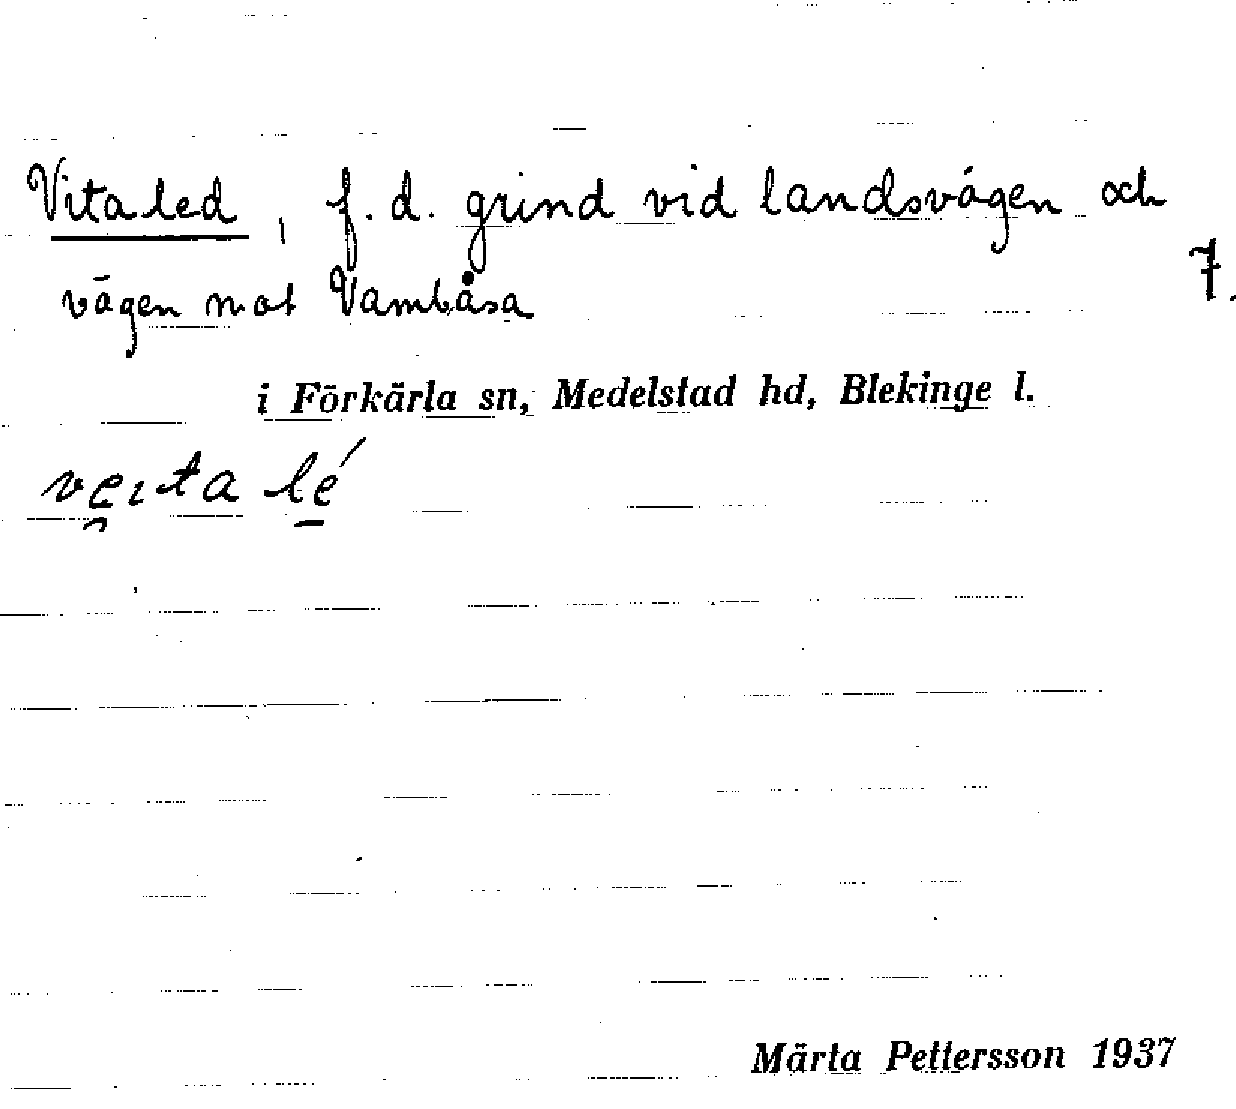 Vitaled, f.d. grind vid landsvägen och
7.
vägen mot Vambåsa
i Förkärla sn, Medelstad hd, Blekinge l.
vei̯ta lé
Märta Pettersson 1937